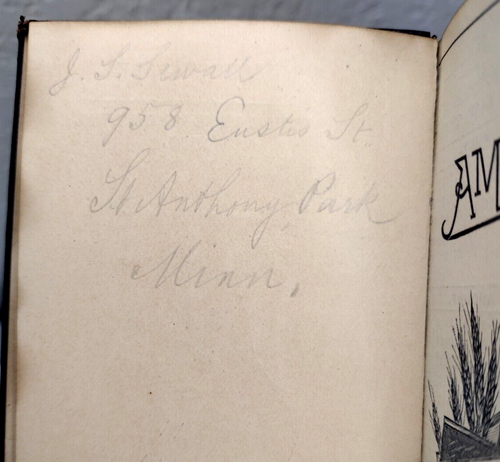 J. S. Sewall
958 Eustis St.
St. Anthony Park
Minn.
AM